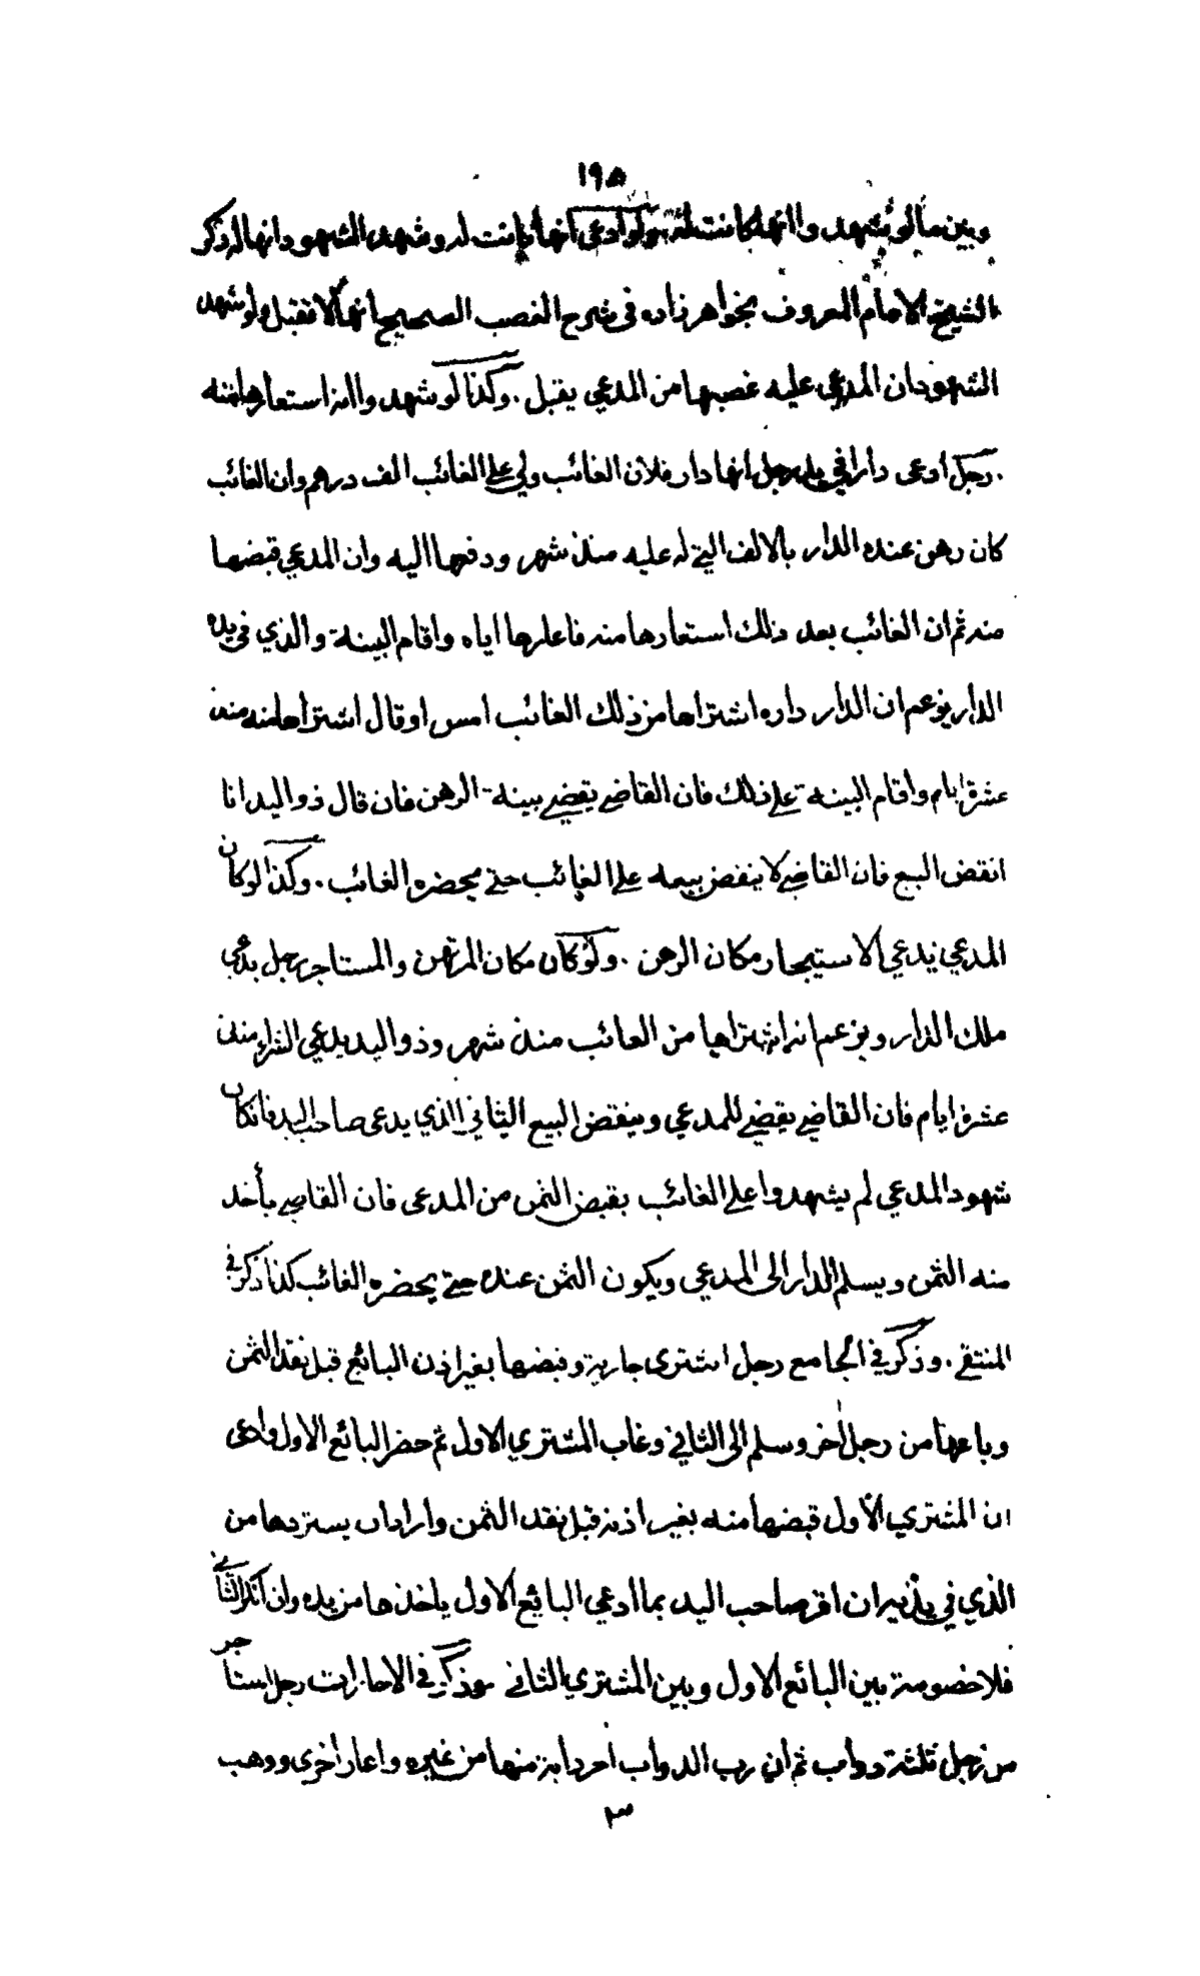 ١٩٥
وبين ما لو شهدوا انها كانت له ولو ادعى انها كانت له وشهد الشهود انها له ذكر
الشيخ الامام المعروف بخواهر زاده في شرح الغصب الصحيح انها لا تقبل ولو شهد
الشهود ان المدعى عليه غصبها من المدعي يقبل . وكذا لو شهدوا انه استعارها منه
. رجل ادعى دارا في يد رجل انها دار فلان الغائب ولي على الغائب الف درهم وان الغائب
كان رهن عنده الدار بالالف التي له عليه منذ شهر ودفعها اليه وان المدعي قبضها
منه ثم ان الغائب بعد ذلك استعارها منه فاعارها اياه واقام البينة والذي في يده
الدار يزعم ان الدار داره اشتراها من ذلك الغائب امس او قال اشتراها منه منذ
عشرة ايام واقام البينة على ذلك فان القاضي يقضي ببينة الرهن فان قال ذو اليد انا
انقض البيع فان القاضي لا ينقض بيعه على الغائب حتى يحضره الغائب . وكذا لو كان
المدعي يدعي الاستيجار مكان الرهن . ولو كان مكان المرتهن والمستاجر رجل يدعي
ملك الدار ويزعم انه اشتراها من الغائب منذ شهر وذو اليد يدعي الشراء منذ
عشرة ايام فان القاضي يقضي للمدعي وينقض البيع الثاني الذي يدعى صاحب اليد فان كان
شهود المدعي لم يشهدوا على الغائب بقبض الثمن من المدعى فان القاضي يأخذ
منه الثمن ويسلم الدار الى المدعي ويكون الثمن عنده حتى يحضره الغائب كذا ذكر في
المنتقى . وذكر في الجامع رجل اشترى جارية وقبضها بغير اذن البائع قبل نقد الثمن
وباعها من رجل اخر وسلم الى الثاني وغاب المشتري الاول ثم حضر البائع الاول وادعى
ان المشتري الأول قبضها منه بغير اذنه قبل نقد الثمن واراد ان يستردها من
الذي في يديه ان اقر صاحب اليد بما ادعي البايع الاول ياخذها من يده وان انكر الثاني
فلا خصومة بين البائع الاول وبين المشتري الثاني وذكر في الاجارات رجل استاجر
من رجل ثلثة دواب ثم ان رب الدواب اجر دابة منها من غيره واعار اخرى ووهب